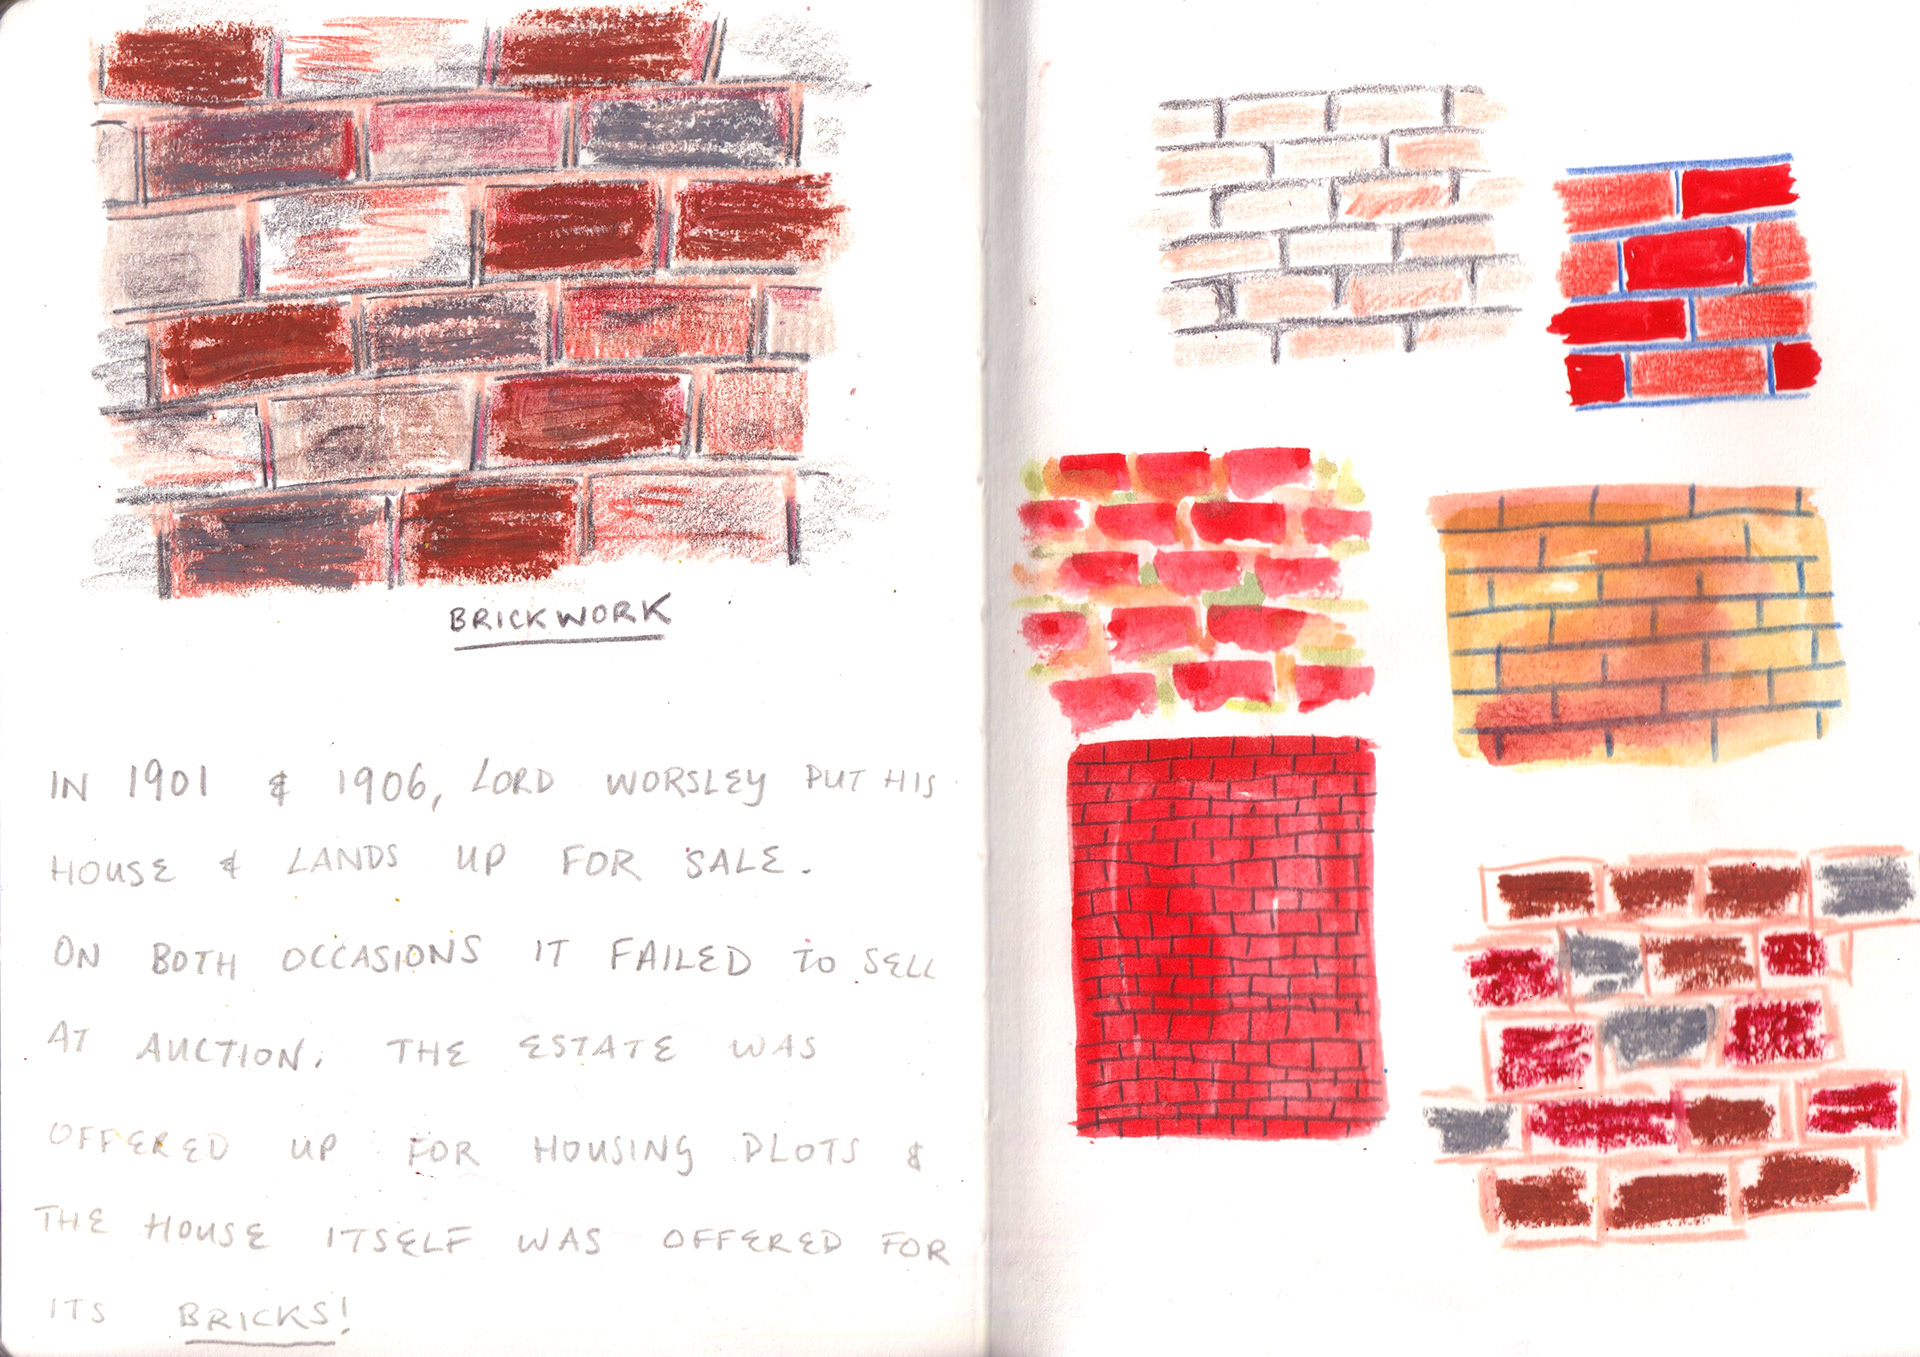 BRICKWORK
IN 1901 & 1906, LORD WORSLEY PUT HIS
HOUSE & LANDS UP FOR SALE.
ON BOTH OCCASIONS IT FAILED TO SELL
AT AUCTION. THE ESTATE WAS
OFFERED UP FOR HOUSING PLOTS &
THE HOUSE ITSELF WAS OFFERED FOR
ITS BRICKS!